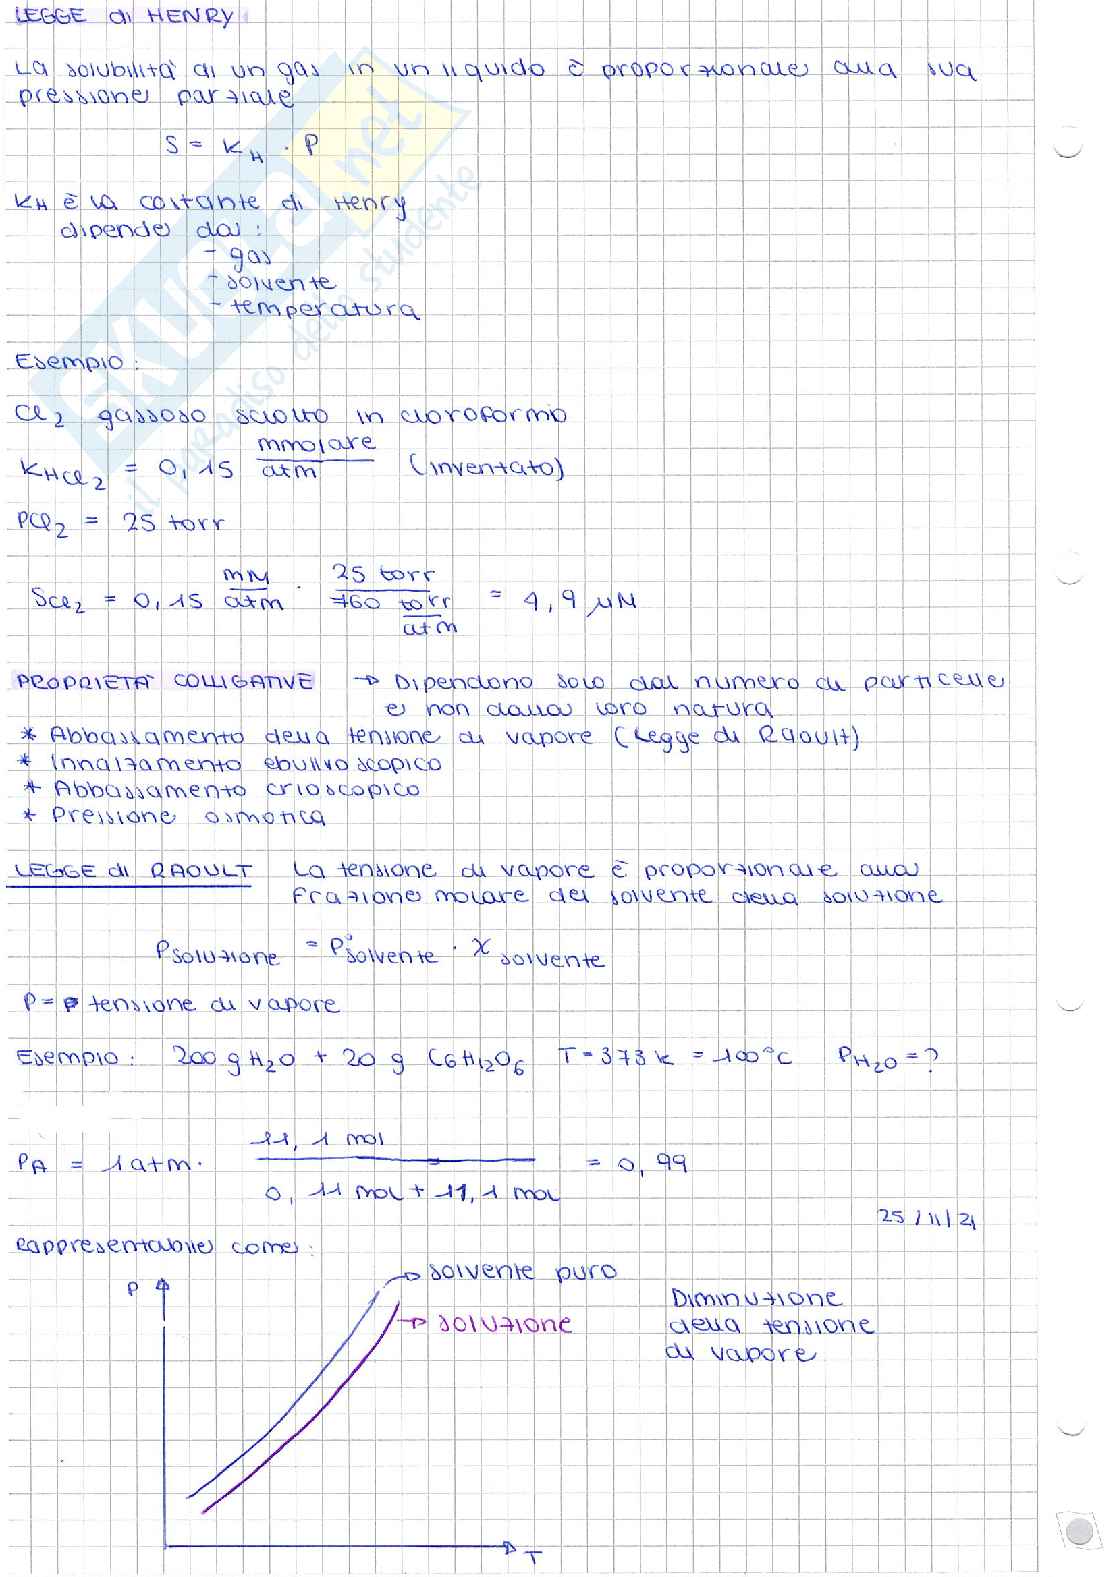 LEGGE di HENRY
La solubilità di un gas in un liquido è proporzionale alla sua
pressione parziale
S = KH · P
KH è la costante di Henry
dipende da:
- gas
- solvente
- temperatura
Esempio:
Cl2 gassoso sciolto in cloroformio
KHCl2 = 0,15 mmolare/atm (inventato)
PCl2 = 25 torr
SCl2 = 0,15 mM/atm · 25 torr / 760 torr/atm = 4,9 μM
PROPRIETÀ COLLIGATIVE → Dipendono solo dal numero di particelle
e non dalla loro natura
* Abbassamento della tensione di vapore (Legge di Raoult)
* Innalzamento ebullioscopico
* Abbassamento crioscopico
* Pressione osmotica
LEGGE di RAOULT La tensione di vapore è proporzionale alla
frazione molare del solvente della soluzione
Psoluzione = P°solvente · X solvente
P = tensione di vapore
Esempio: 200 g H2O + 20 g C6H12O6 T = 373 K = 100°C PH2O = ?
PA = 1 atm · 11,1 mol / 0,11 mol + 11,1 mol = 0,99
25/11/21
Rappresentabile come:
P
→ solvente puro
→ soluzione
Diminuzione
della tensione
di vapore
T
SKUOLA.net
il paradiso dello studente